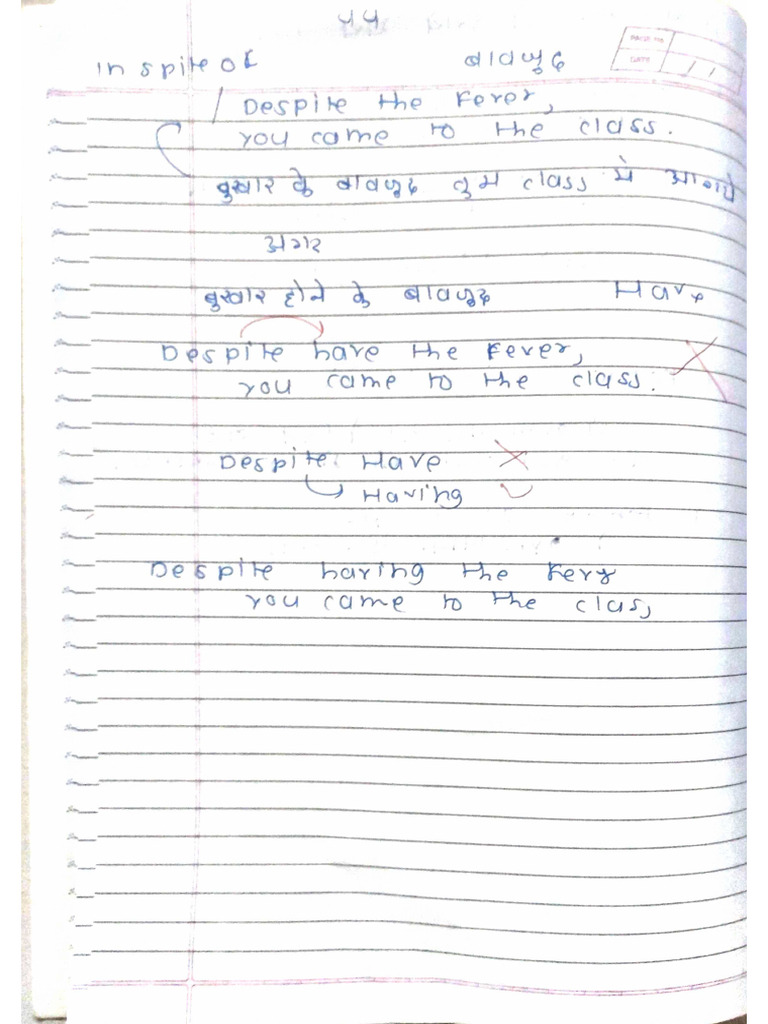 44
In spite of बावजूद
PAGE NO.
DATE / /
Despite the Fever,
you came to the class.
बुखार के बावजूद तुम class मे आगये
अगर
बुखार होने के बावजूद Have
Despite have the Fever, ✗
you came to the class.
Despite Have ✗
Having ✓
Despite having the Ferx
you came to the class,